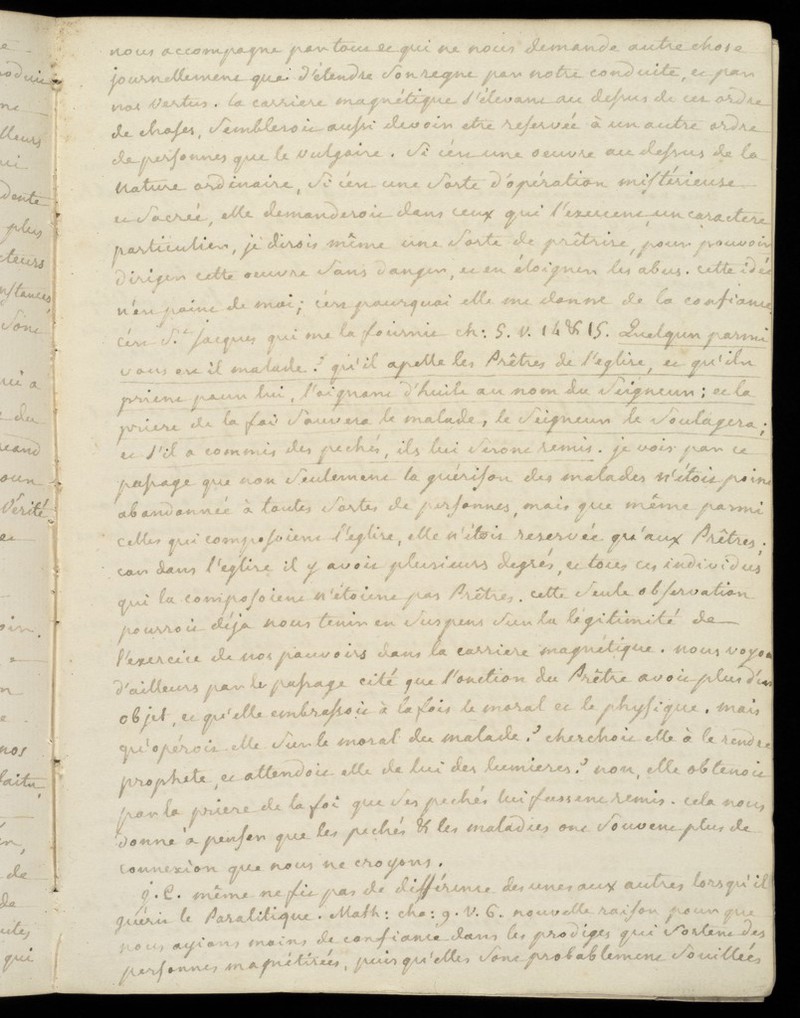 nous accompagne partout et qui ne nous demande autre chose
journellement que d'étendre son regne par notre conduite, et par
nos vertus. la carriere magnétique s'élevant au dessus de cet ordre
de choses, sembleroit aussi devoir etre reservée à un autre ordre
de personnes que le vulgaire. Si c'est une oeuvre au dessus de la
nature ordinaire, Si c'est une sorte d'opération mistérieuse
et sacrée, elle demanderoit dans ceux qui l'exercent un caractere
particulier, je dirois même une sorte de prêtrise, pour pouvoir
diriger cette oeuvre sans danger, et en éloigner les abus. cette idée
n'est point de moi; c'est pourquoi elle me donne de la confiance
c'est St. Jacques qui me la fournit ch: 5. v. 14 & 15. Quelqun parmi
vous est il malade? qu'il apelle les Prêtres de l'eglise, et qu'ils
prient pour lui, l'oignant d'huile au nom du Seigneur; et la
priere de la foi sauvera le malade, le Seigneur le soulagera;
et s'il a commis des pechés, ils lui seront remis. je vois par ce
passage que non seulement la guérison des malades n'étoit point
abandonnée à toutes sortes de personnes, mais que même parmi
celles qui composoient l'eglise, elle n'étoit reservée qu'aux Prêtres;
car dans l'eglise il y avoit plusieurs degrés, et tous ces individus
qui la composoient n'étoient pas Prêtres. cette seule observation
pourroit déja nous tenir en suspens sur la légitimité de
l'exercice de nos pouvoirs dans la carriere magnétique. nous voyons
d'ailleurs par le passage cité que l'onction du Prêtre avoit plus d'un
objet, et qu'elle embrassoit à la fois le moral et le physique. mais
qu'opéroit elle sur le moral du malade? cherchoit elle à le rendre
prophete, et attendoit elle de lui des lumieres? non, elle obtenoit
par la priere de la foi que ses pechés lui fussent remis. cela nous
donne à penser que les pechés & les maladies ont souvent plus de
connexion que nous ne croyons.
J. C. même ne fit pas de différence des unes aux autres lorsqu'il
guérit le Paralitique. Math: cha: 9. v. 6. nouvelle raison pour que
nous ayions moins de confiance dans les prodiges qui sortent des
personnes magnétisées, puisqu'elles sont probablement souillées